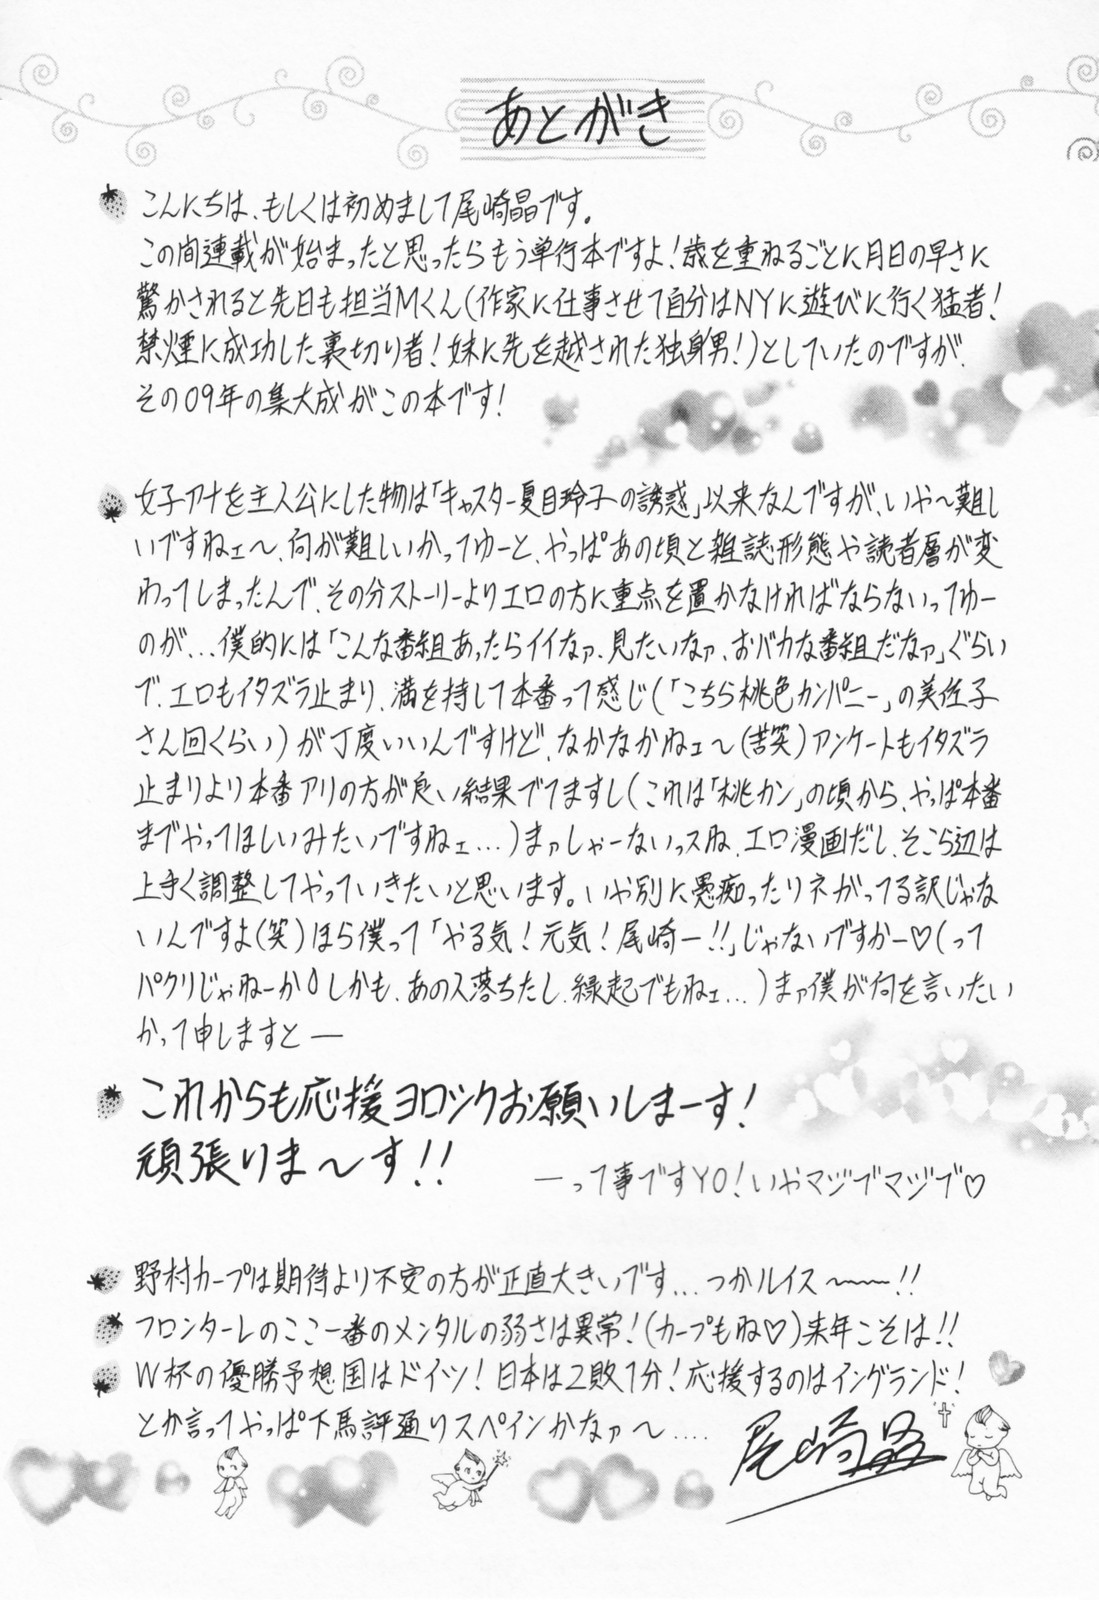 あとがき
こんにちは、もしくは初めまして尾崎晶です。
この間連載が始まったと思ったらもう単行本ですよ!歳を重ねるごとに月日の早さに
驚かされると先日も担当Mくん(作家に仕事させて自分はNYに遊びに行く猛者!
禁煙に成功した裏切り者!妹に先を越された独身男!)としていたのですが、
その09年の集大成がこの本です!
女子アナを主人公にした物は「キャスター夏目玲子の誘惑」以来なんですが、いや〜難し
いですねェ〜、何が難しいかってゆーと、やっぱあの頃と雑誌形態や読者層が変
わってしまったんで、その分ストーリーよりエロの方に重点を置かなければならないってゆー
のが...僕的には「こんな番組あったらイイなァ、見たいなァ、おバカな番組だなァ」ぐらい
で、エロもイタズラ止まり、満を持して本番って感じ(「こちら桃色カンパニー」の美佐子
さん回くらい)が丁度いいんですけど、なかなかねェ〜(苦笑)アンケートもイタズラ
止まりより本番アリの方が良い結果でてますし(これは「桃カン」の頃から、やっぱ本番
までやってほしいみたいですねェ...)まァしゃーないっスね、エロ漫画だし、そこら辺は
上手く調整してやっていきたいと思います。いや別に愚痴ったりネガってる訳じゃな
いんですよ(笑)ほら僕って「やる気!元気!尾崎ー!!」じゃないですかー♡(って
パクリじゃねーか しかも、あの人落ちたし、縁起でもねェ...)まァ僕が何を言いたい
かって申しますと―
これからも応援ヨロシクお願いしまーす!
頑張りま〜す!!
―って事ですYO!いやマジでマジで♡
野村カープは期待より不安の方が正直大きいです...つかルイス〜〜!!
フロンターレのここ一番のメンタルの弱さは異常!(カープもね♡)来年こそは!!
W杯の優勝予想国はドイツ!日本は2敗1分!応援するのはイングランド!
とか言ってやっぱ下馬評通りスペインかなァ〜....
尾崎晶